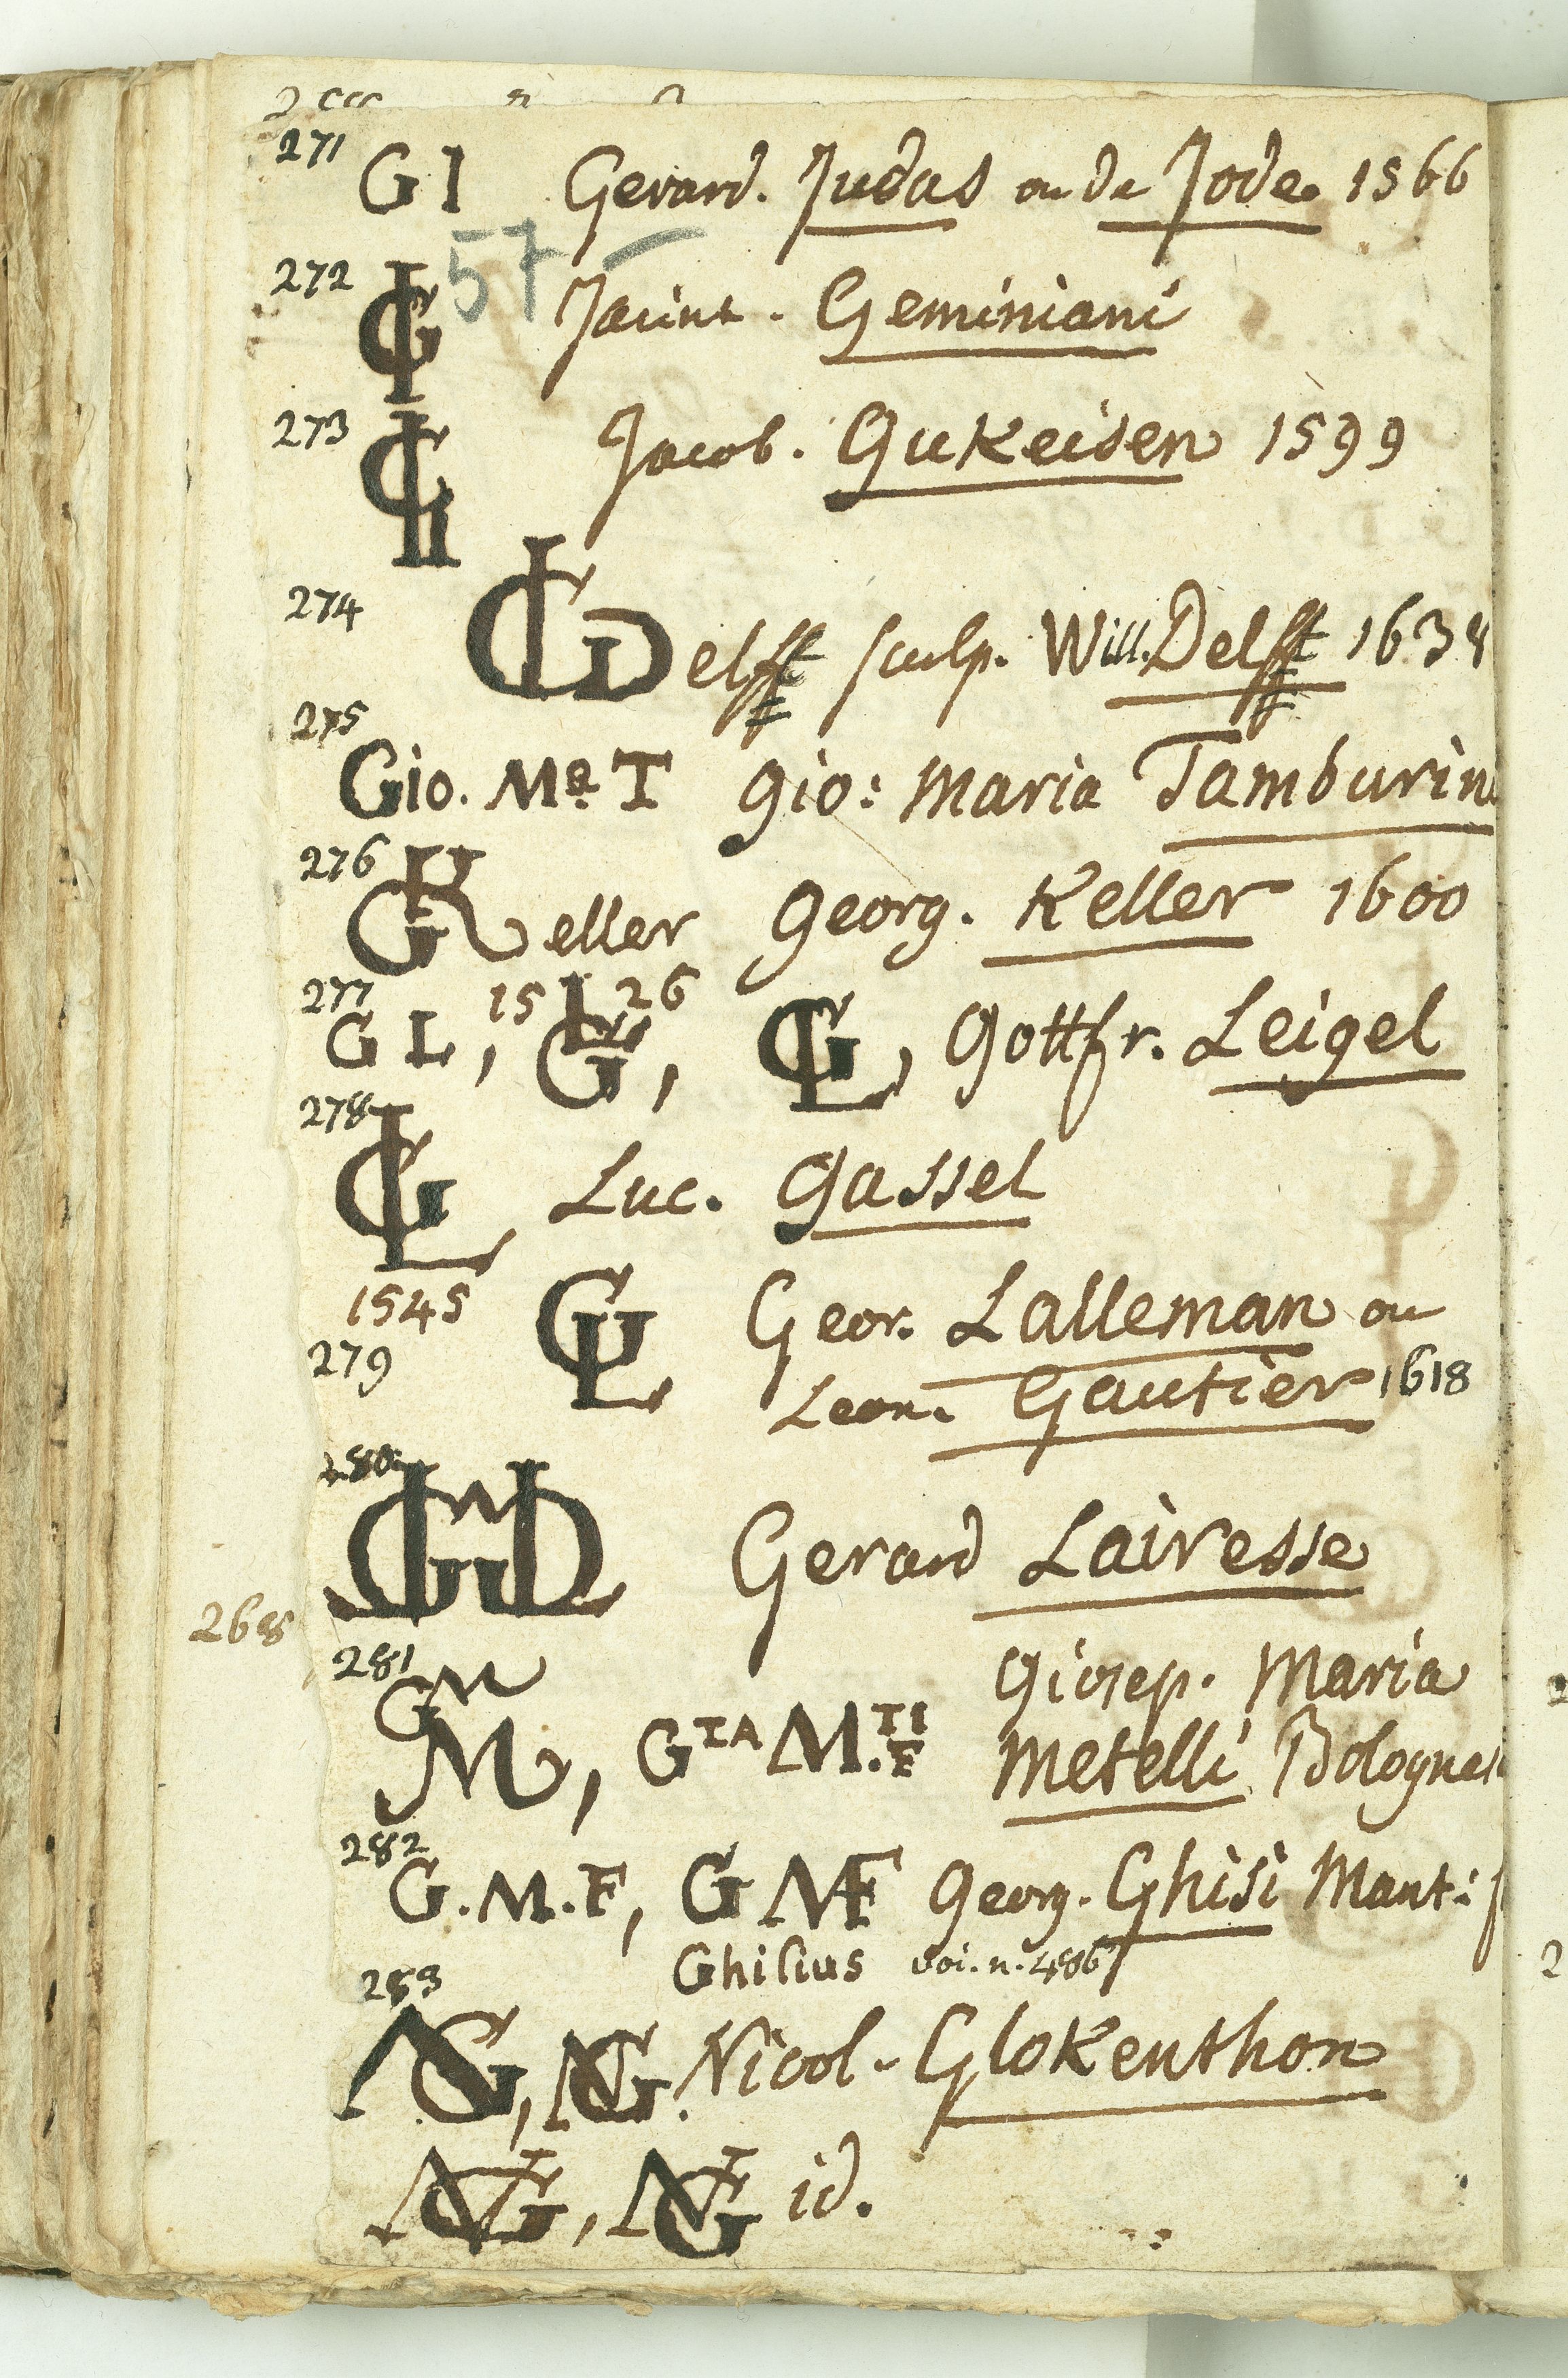 271 GI Gerard. Judas ou de Jode 1566
57
272 GI Jacint. Geminiani
273 Jacob. Gukeisen 1599
274 GDelfft sculp. Will. Delfft 1638
275
Gio. Ma. T Gio: Maria Tamburin
276 GKeller Georg. Keller 1600
277 GL, 15 LG 26, GL, Gottfr. Leigel
278 GL, Luc. Gassel
1545
279 GL Geor. Lalleman ou
Leon. Gautier 1618
280 Gerard Lairesse
268
281 GM Giosep. Maria
M, G IA M. TI F Metelli Bolognes
282 G.M.F, GMF Georg. Ghisi Mant: f
Ghisius voi. n. 486
283
NG, NG. Nicol. Glokenthon
NG, NG id.